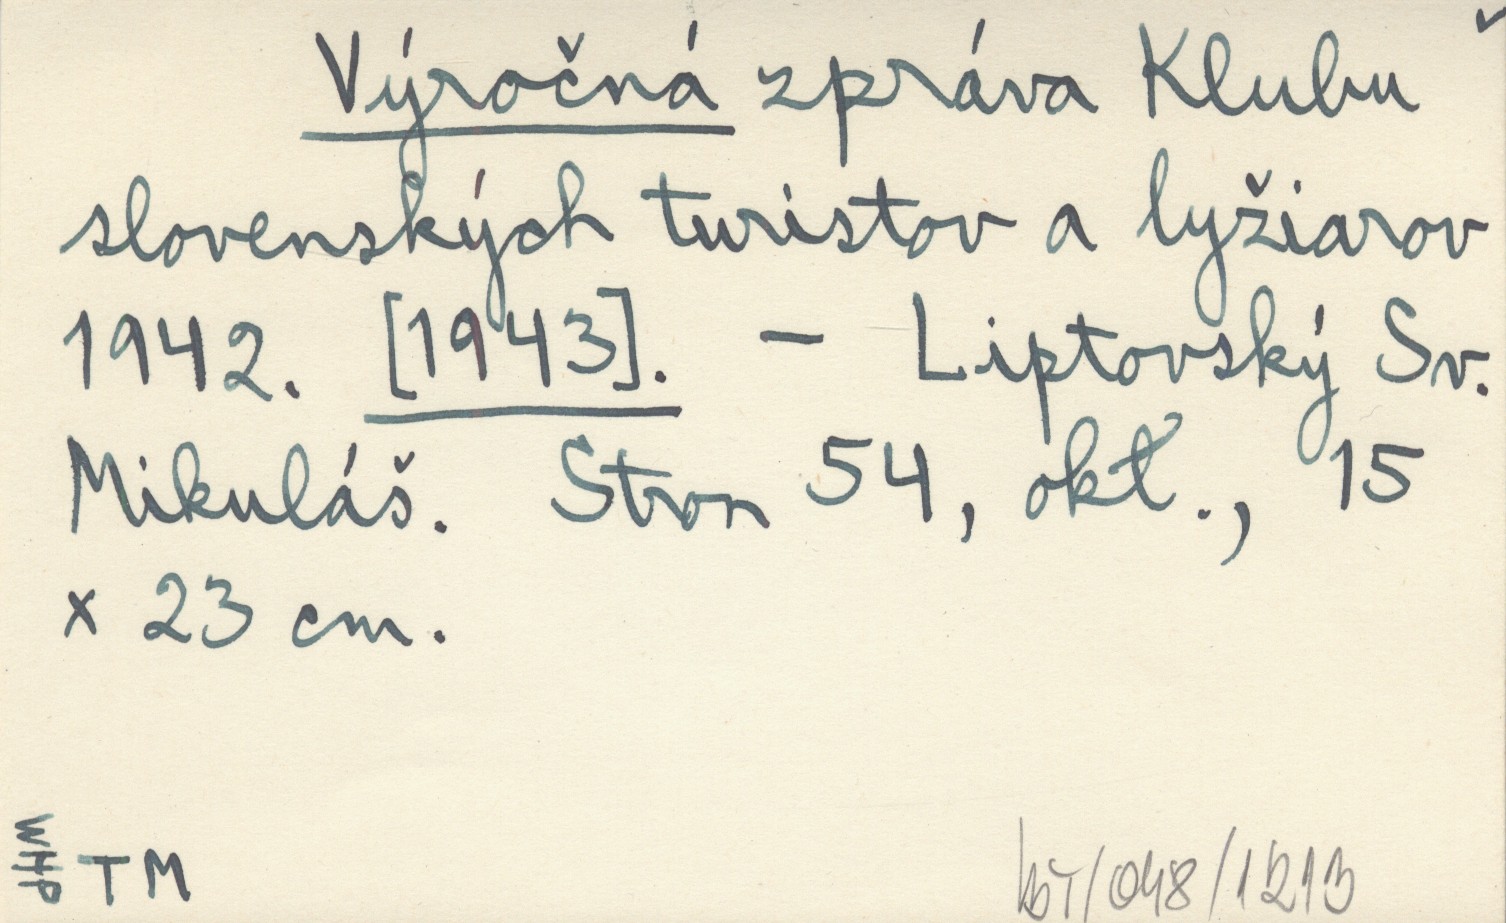 Výročná zpráva Klubu
slovenských turistov a lyžiarov
1942. [1943]. — Liptovský Sv.
Mikuláš. Stron 54, okt., 15
x 23 cm.
WHP TM
/048/1213